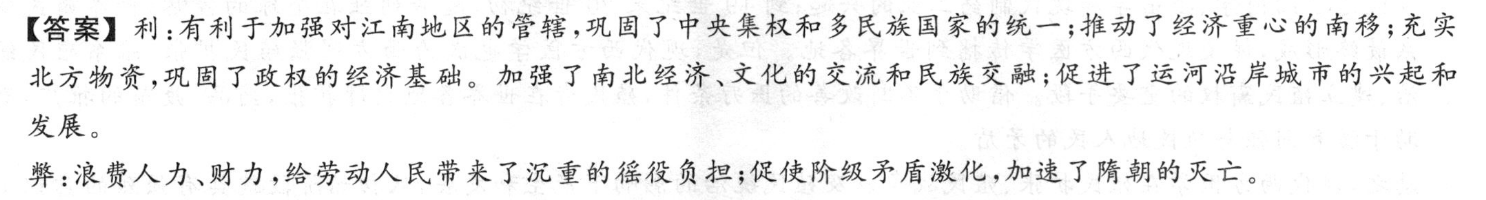 【答案】利:有利于加强对江南地区的管辖,巩固了中央集权和多民族国家的统一;推动了经济重心的南移;充实
北方物资,巩固了政权的经济基础。加强了南北经济、文化的交流和民族交融;促进了运河沿岸城市的兴起和
发展。
弊:浪费人力、财力,给劳动人民带来了沉重的徭役负担;促使阶级矛盾激化,加速了隋朝的灭亡。